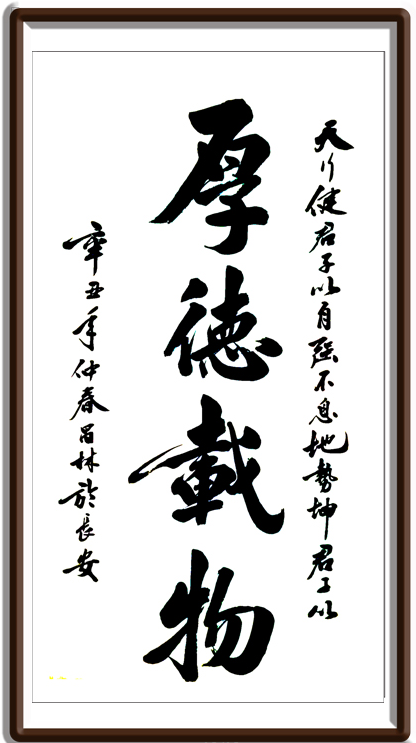 天行健君子以自强不息地势坤君子以
厚德載物
辛丑年仲春昌林於長安